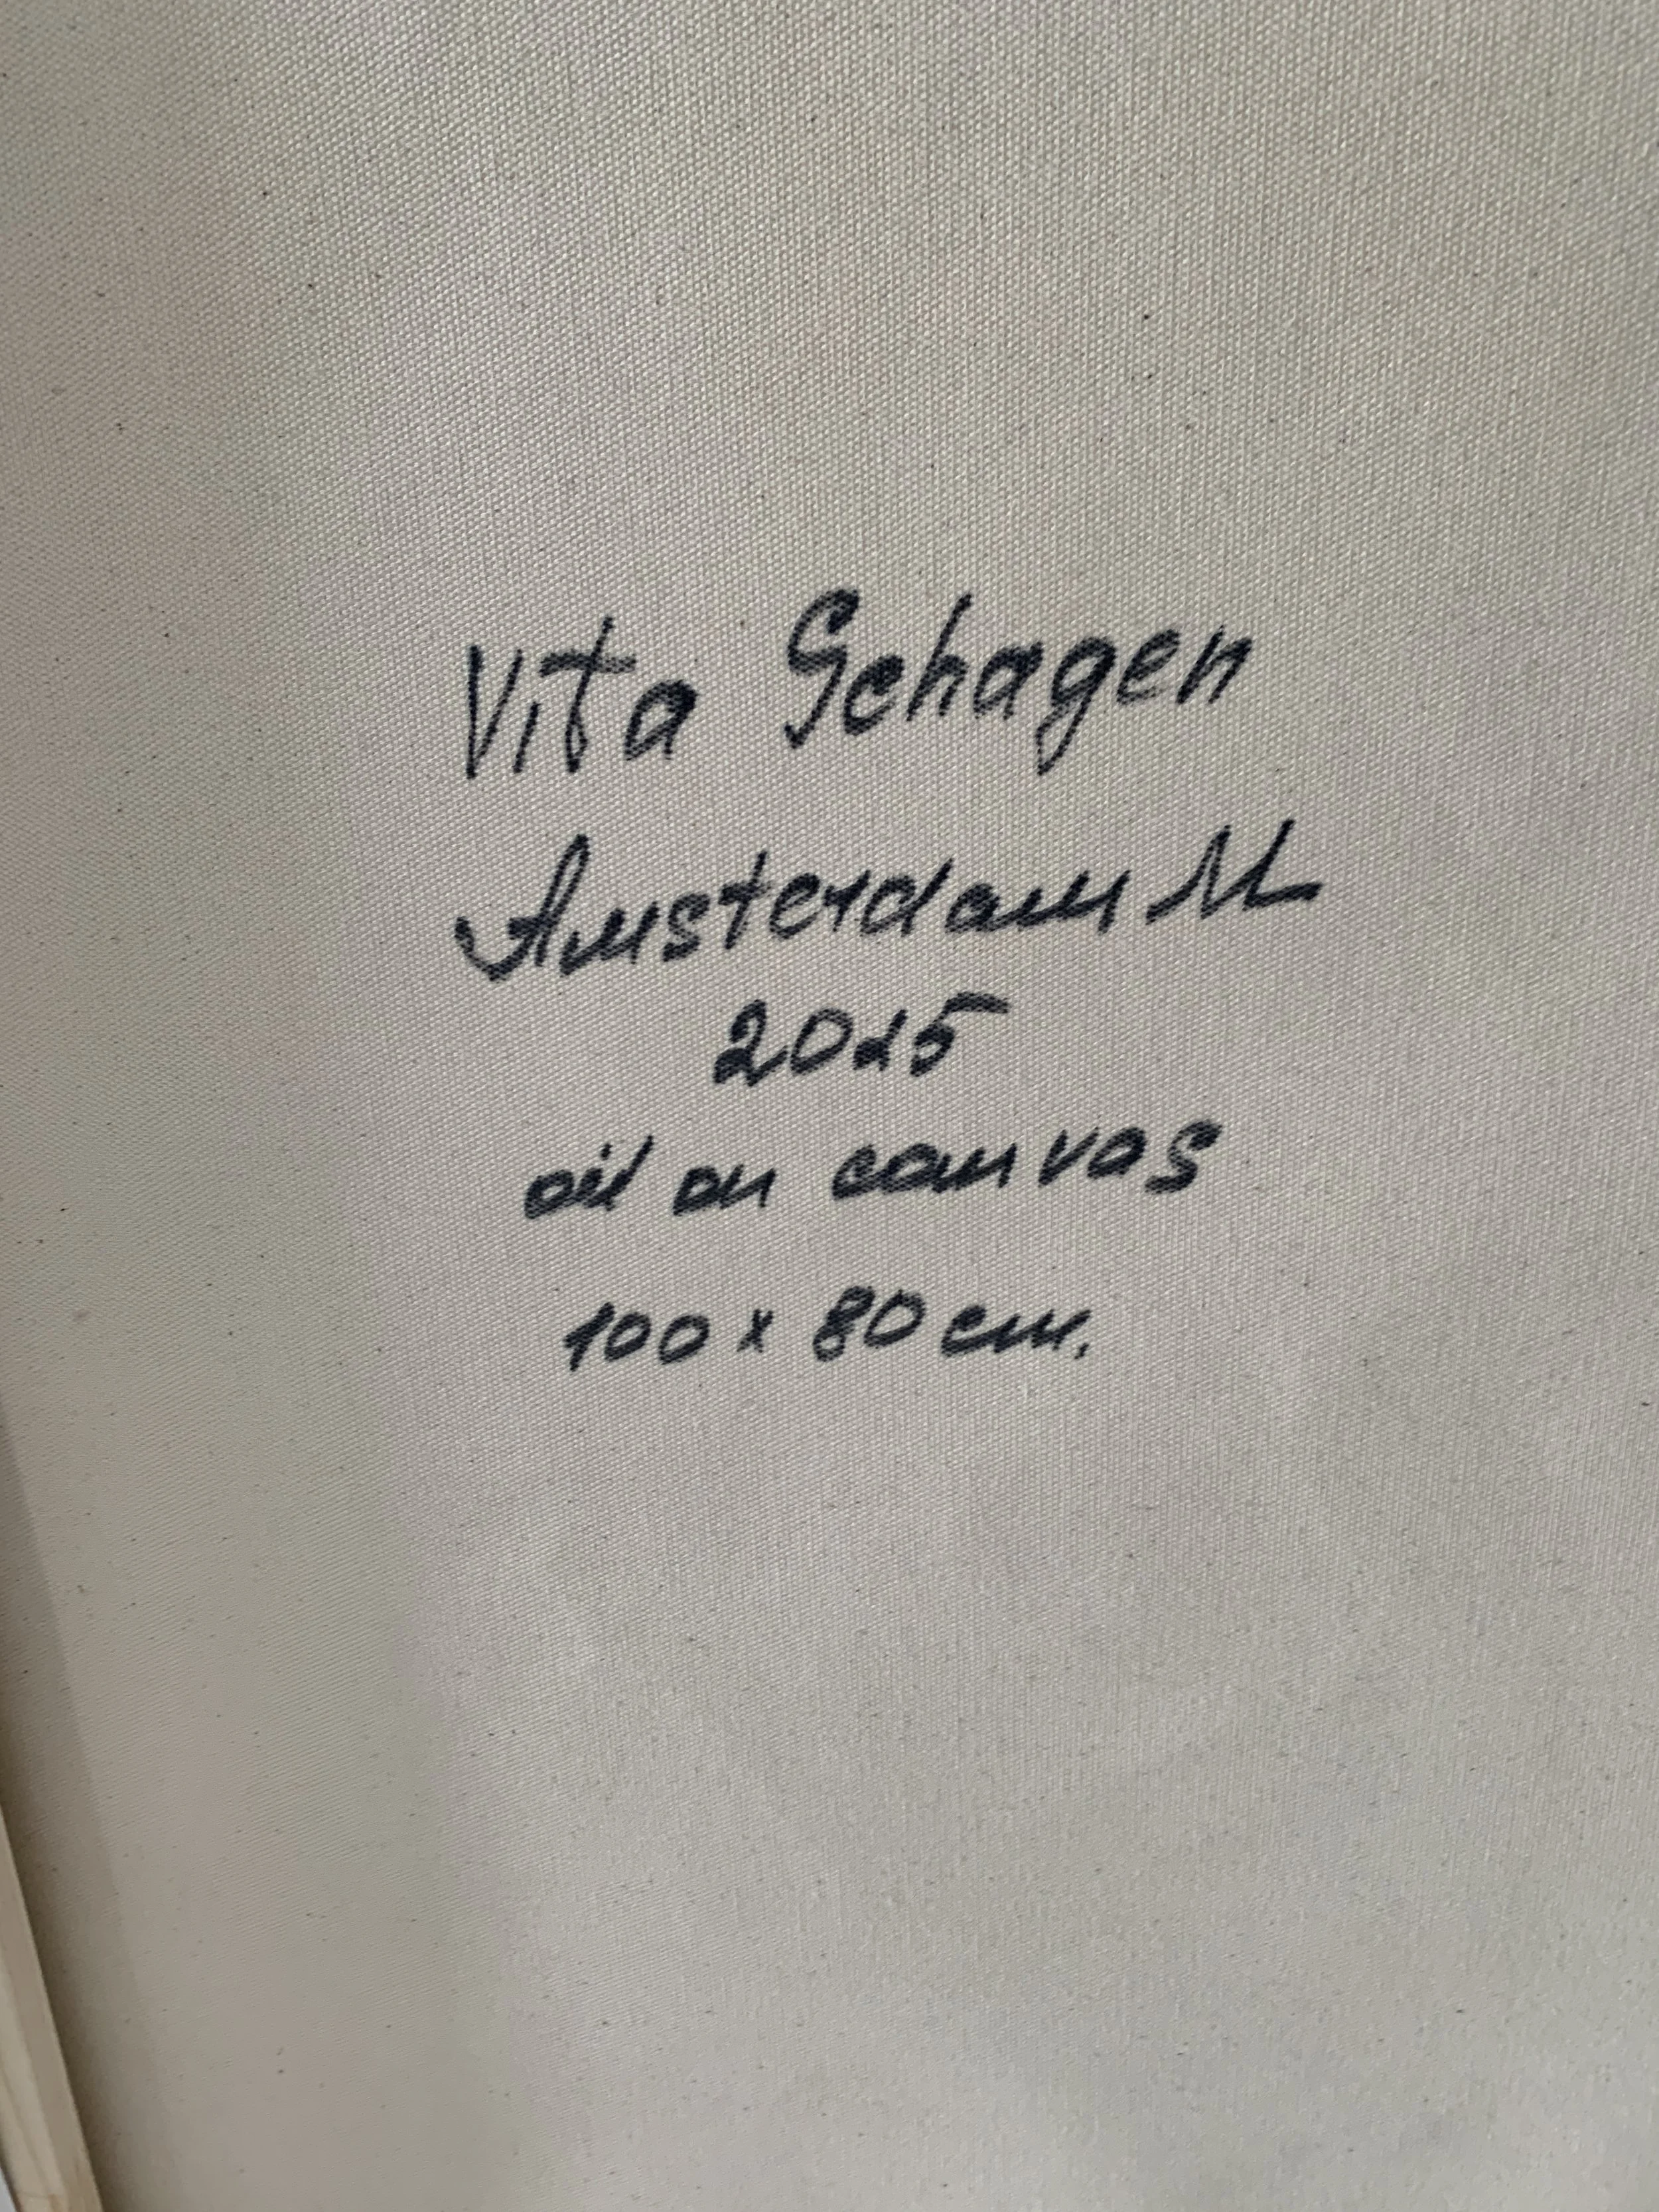 Vita Schagen
Amsterdam NL
2015
oil on canvas
100 x 80 cm.